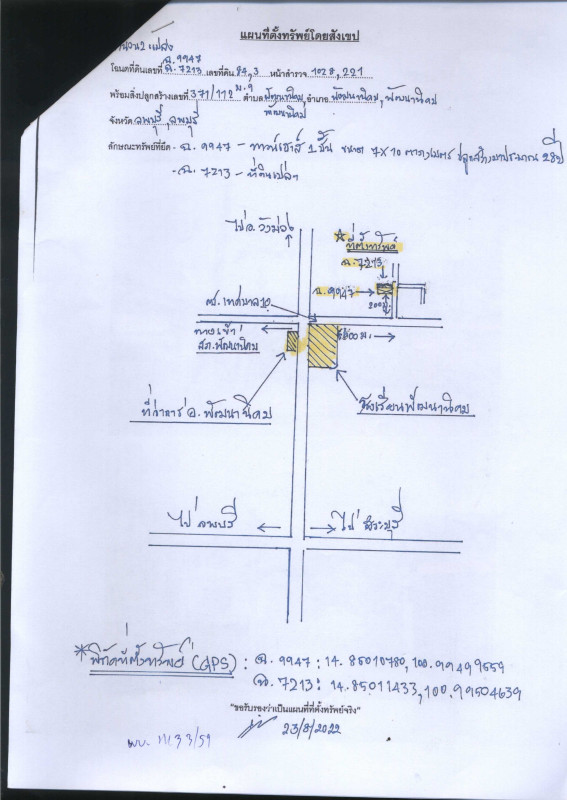 แผนที่ตั้งทรัพย์โดยสังเขป
จำนวน 2 แปลง
ฉ.9947
โฉนดที่ดินเลขที่ ฉ.7213 เลขที่ดิน 84,3 หน้าสำรวจ 1028,221
พร้อมสิ่งปลูกสร้างเลขที่ 371/112 ม.9 ตำบล พัฒนานิคม, อำเภอ พัฒนานิคม, พัฒนานิคม
พัฒนานิคม
จังหวัด ลพบุรี, ลพบุรี
ลักษณะทรัพย์ที่ยึด - ฉ. 9947 - ทาวน์เฮ้าส์ 2 ชั้น ขนาด 7x10 ตารางเมตร ปลูกสร้างมาประมาณ 28 ปี
- ฉ. 7213 - ที่ดินเปล่า
ไป อ.วังม่วง
ที่ตั้งทรัพย์
ฉ.7213
ฉ.9947
200 ม.
ทางเข้า
สภ.พัฒนานิคม
ที่ว่าการ อ.พัฒนานิคม
โรงเรียนพัฒนานิคม
ไป ลพบุรี
ไป สระบุรี
*พิกัดที่ตั้งทรัพย์ (GPS) : ฉ. 9947 : 14.85010780,100.99499559
ฉ. 7213 : 14.85011433,100.99504639
"ขอรับรองว่าเป็นแผนที่ที่ตั้งทรัพย์จริง"
23/8/2022